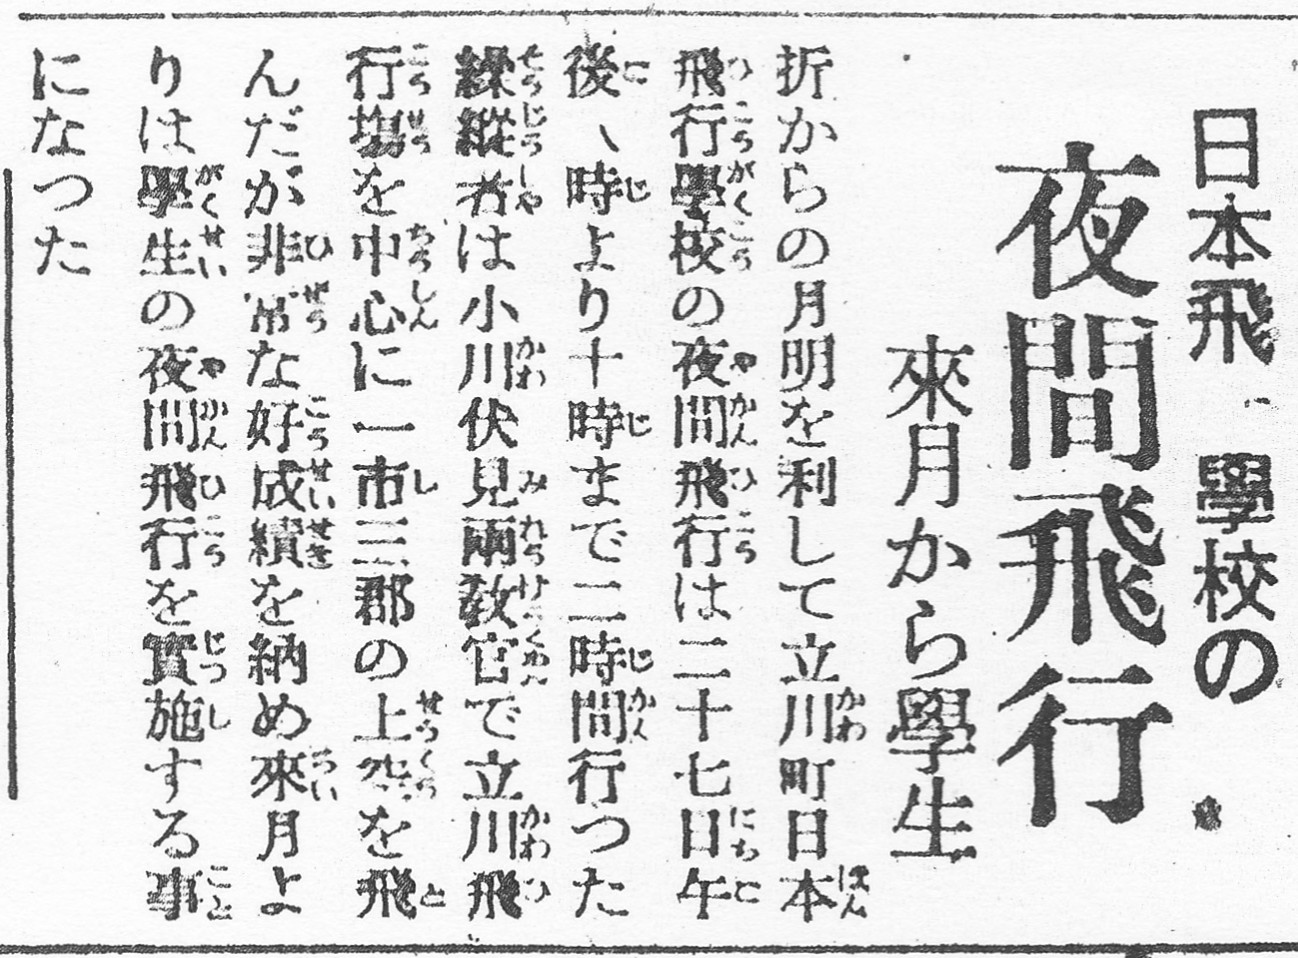 日本飛 學校の
夜間飛行
來月から學生
折からの月明を利して立川町日本
飛行學校の夜間飛行は二十七日午
後、時より十時まで二時間行つた
繰縱者は小川伏見兩敎官で立川飛
行塲を中心に一市三郡の上空を飛
んだが非常な好成績を納め來月よ
りは學生の夜間飛行を實施する事
になつた